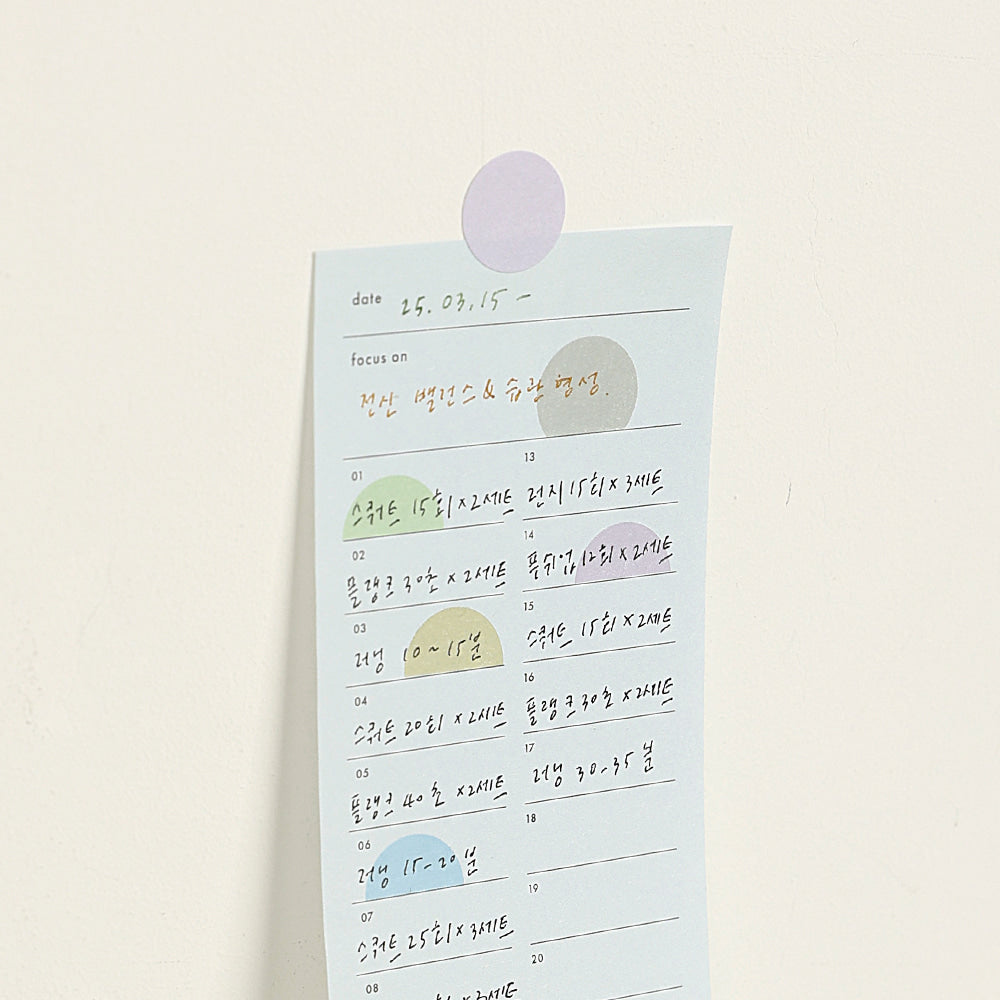 date 25.03.15 -
focus on
전신 밸런스 & 습관 형성.
01
스쿼트 15회 x 2세트
02
플랭크 30초 x 2세트
03
러닝 10~15분
04
스쿼트 20회 x 2세트
05
플랭크 40초 x2세트
06
러닝 15-20분
07
스쿼트 25회 x 3세트
08
x 3세트
13
런지 15회 x 3세트
14
푸쉬업 12회 x 2세트
15
스쿼트 15회 x 2세트
16
플랭크 30초 x 2세트
17
러닝 30-35분
18
19
20